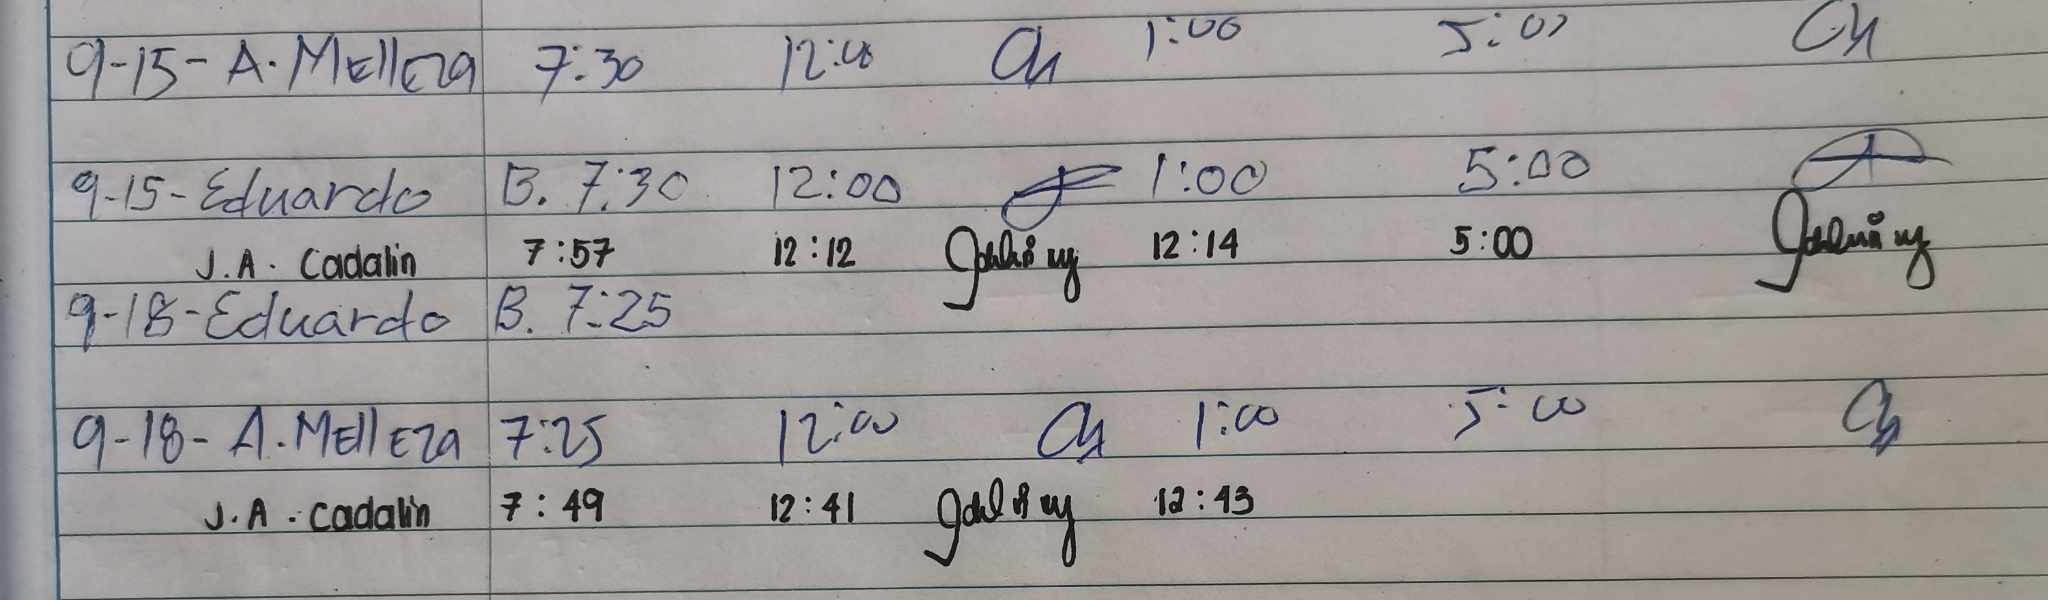 9-15- A. MEllEza 7:30 12:00 1:00 5:00
9-15- Eduardo B. 7:30 12:00 1:00 5:00
J.A. Cadalin 7:57 12:12 12:14 5:00
9-18- Eduardo B. 7:25
9-18- A. MEllEza 7:25 12:00 1:00 5:00
J.A. Cadalin 7:49 12:41 12:43